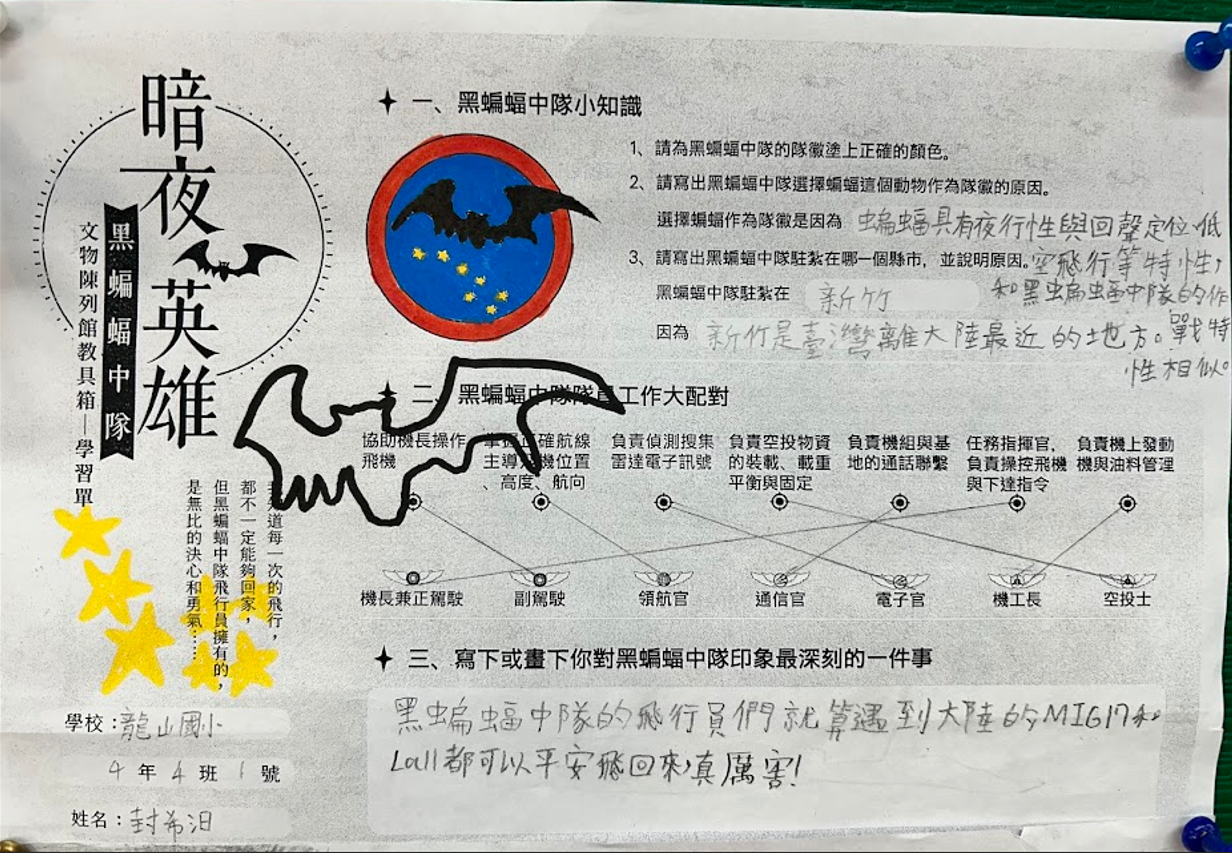 暗夜英雄
黑蝙蝠中隊
文物陳列館教具箱—學習單
我知道每一次的飛行，
都不一定能夠回家，
但黑蝙蝠中隊飛行員擁有的，
是無比的決心和勇氣……
學校：龍山國小
4年4班1號
姓名：封希
一、黑蝙蝠中隊小知識
1、請為黑蝙蝠中隊的隊徽塗上正確的顏色。
2、請寫出黑蝙蝠中隊選擇蝙蝠這個動物作為隊徽的原因。
選擇蝙蝠作為隊徽是因為 蝙蝠具有夜行性與回聲定位、低
空飛行等特性，
和黑蝙蝠中隊的作
戰特
性相似。
3、請寫出黑蝙蝠中隊駐紮在哪一個縣市，並說明原因。
黑蝙蝠中隊駐紮在 新竹
因為 新竹是臺灣離大陸最近的地方。
二、黑蝙蝠中隊隊員工作大配對
協助機長操作
飛機
掌握正確航線
主導飛機位置
、高度、航向
負責偵測搜集
雷達電子訊號
負責空投物資
的裝載、載重
平衡與固定
負責機組與基
地的通話聯繫
任務指揮官，
負責操控飛機
與下達指令
負責機上發動
機與油料管理
機長兼正駕駛
副駕駛
領航官
通信官
電子官
機工長
空投士
三、寫下或畫下你對黑蝙蝠中隊印象最深刻的一件事
黑蝙蝠中隊的飛行員們就算遇到大陸的MIG17和
La11都可以平安飛回來，真厲害！